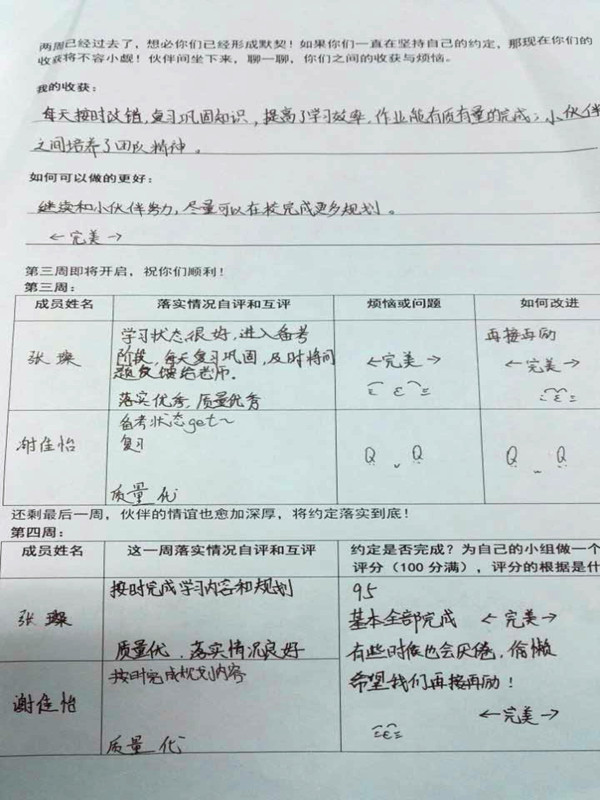 两周已经过去了，想必你们已经形成默契！如果你们一直在坚持自己的约定，那现在你们的
收获将不容小觑！伙伴间坐下来，聊一聊，你们之间的收获与烦恼。
我的收获：
每天按时改错，复习巩固知识，提高了学习效率，作业能有质有量的完成；小伙伴
之间培养了团队精神。
如何可以做的更好：
继续和小伙伴努力，尽量可以在校完成更多规划。
←完美→
第三周即将开启，祝你们顺利！
第三周：
成员姓名 落实情况自评和互评 烦恼或问题 如何改进
张璨
学习状态很好，进入备考
阶段，每天复习巩固，及时将问
题反馈给老师。
落实优秀，质量优秀
←完美→
再接再励
←完美→
谢佳怡
备考状态get~
复习
质量 优
Q ᴗ Q
Q ᴗ Q
还剩最后一周，伙伴的情谊也愈加深厚，将约定落实到底！
第四周：
成员姓名 这一周落实情况自评和互评 约定是否完成？为自己的小组做一个
评分（100 分满），评分的根据是什
张璨
按时完成学习内容和规划
质量优，落实情况良好
谢佳怡
按时完成规划内容
质量 优
95
基本全部完成 ←完美→
有些时候也会厌倦，偷懒
希望我们再接再励！
←完美→